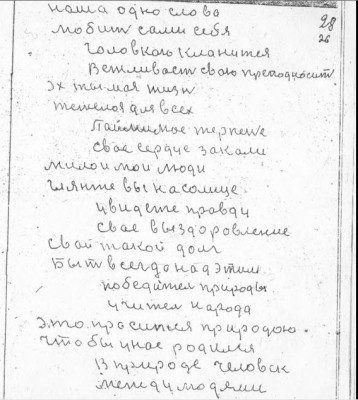 наша одно слова
любит сами себя
28
26
головкою кланится
Вежливаст свою преподносит
Эх ты моя жизн
тежелоя для всех
Паймимое терпеtе
свое сердце закали
милои мои люди
гляньте вы на солнце
увидете правду
свае выздоровление
Свай такой долг
Быт всегда над этим
победител природы
учител народа
это просится природою.
чтобы у нас родился
В природе человек
между людями